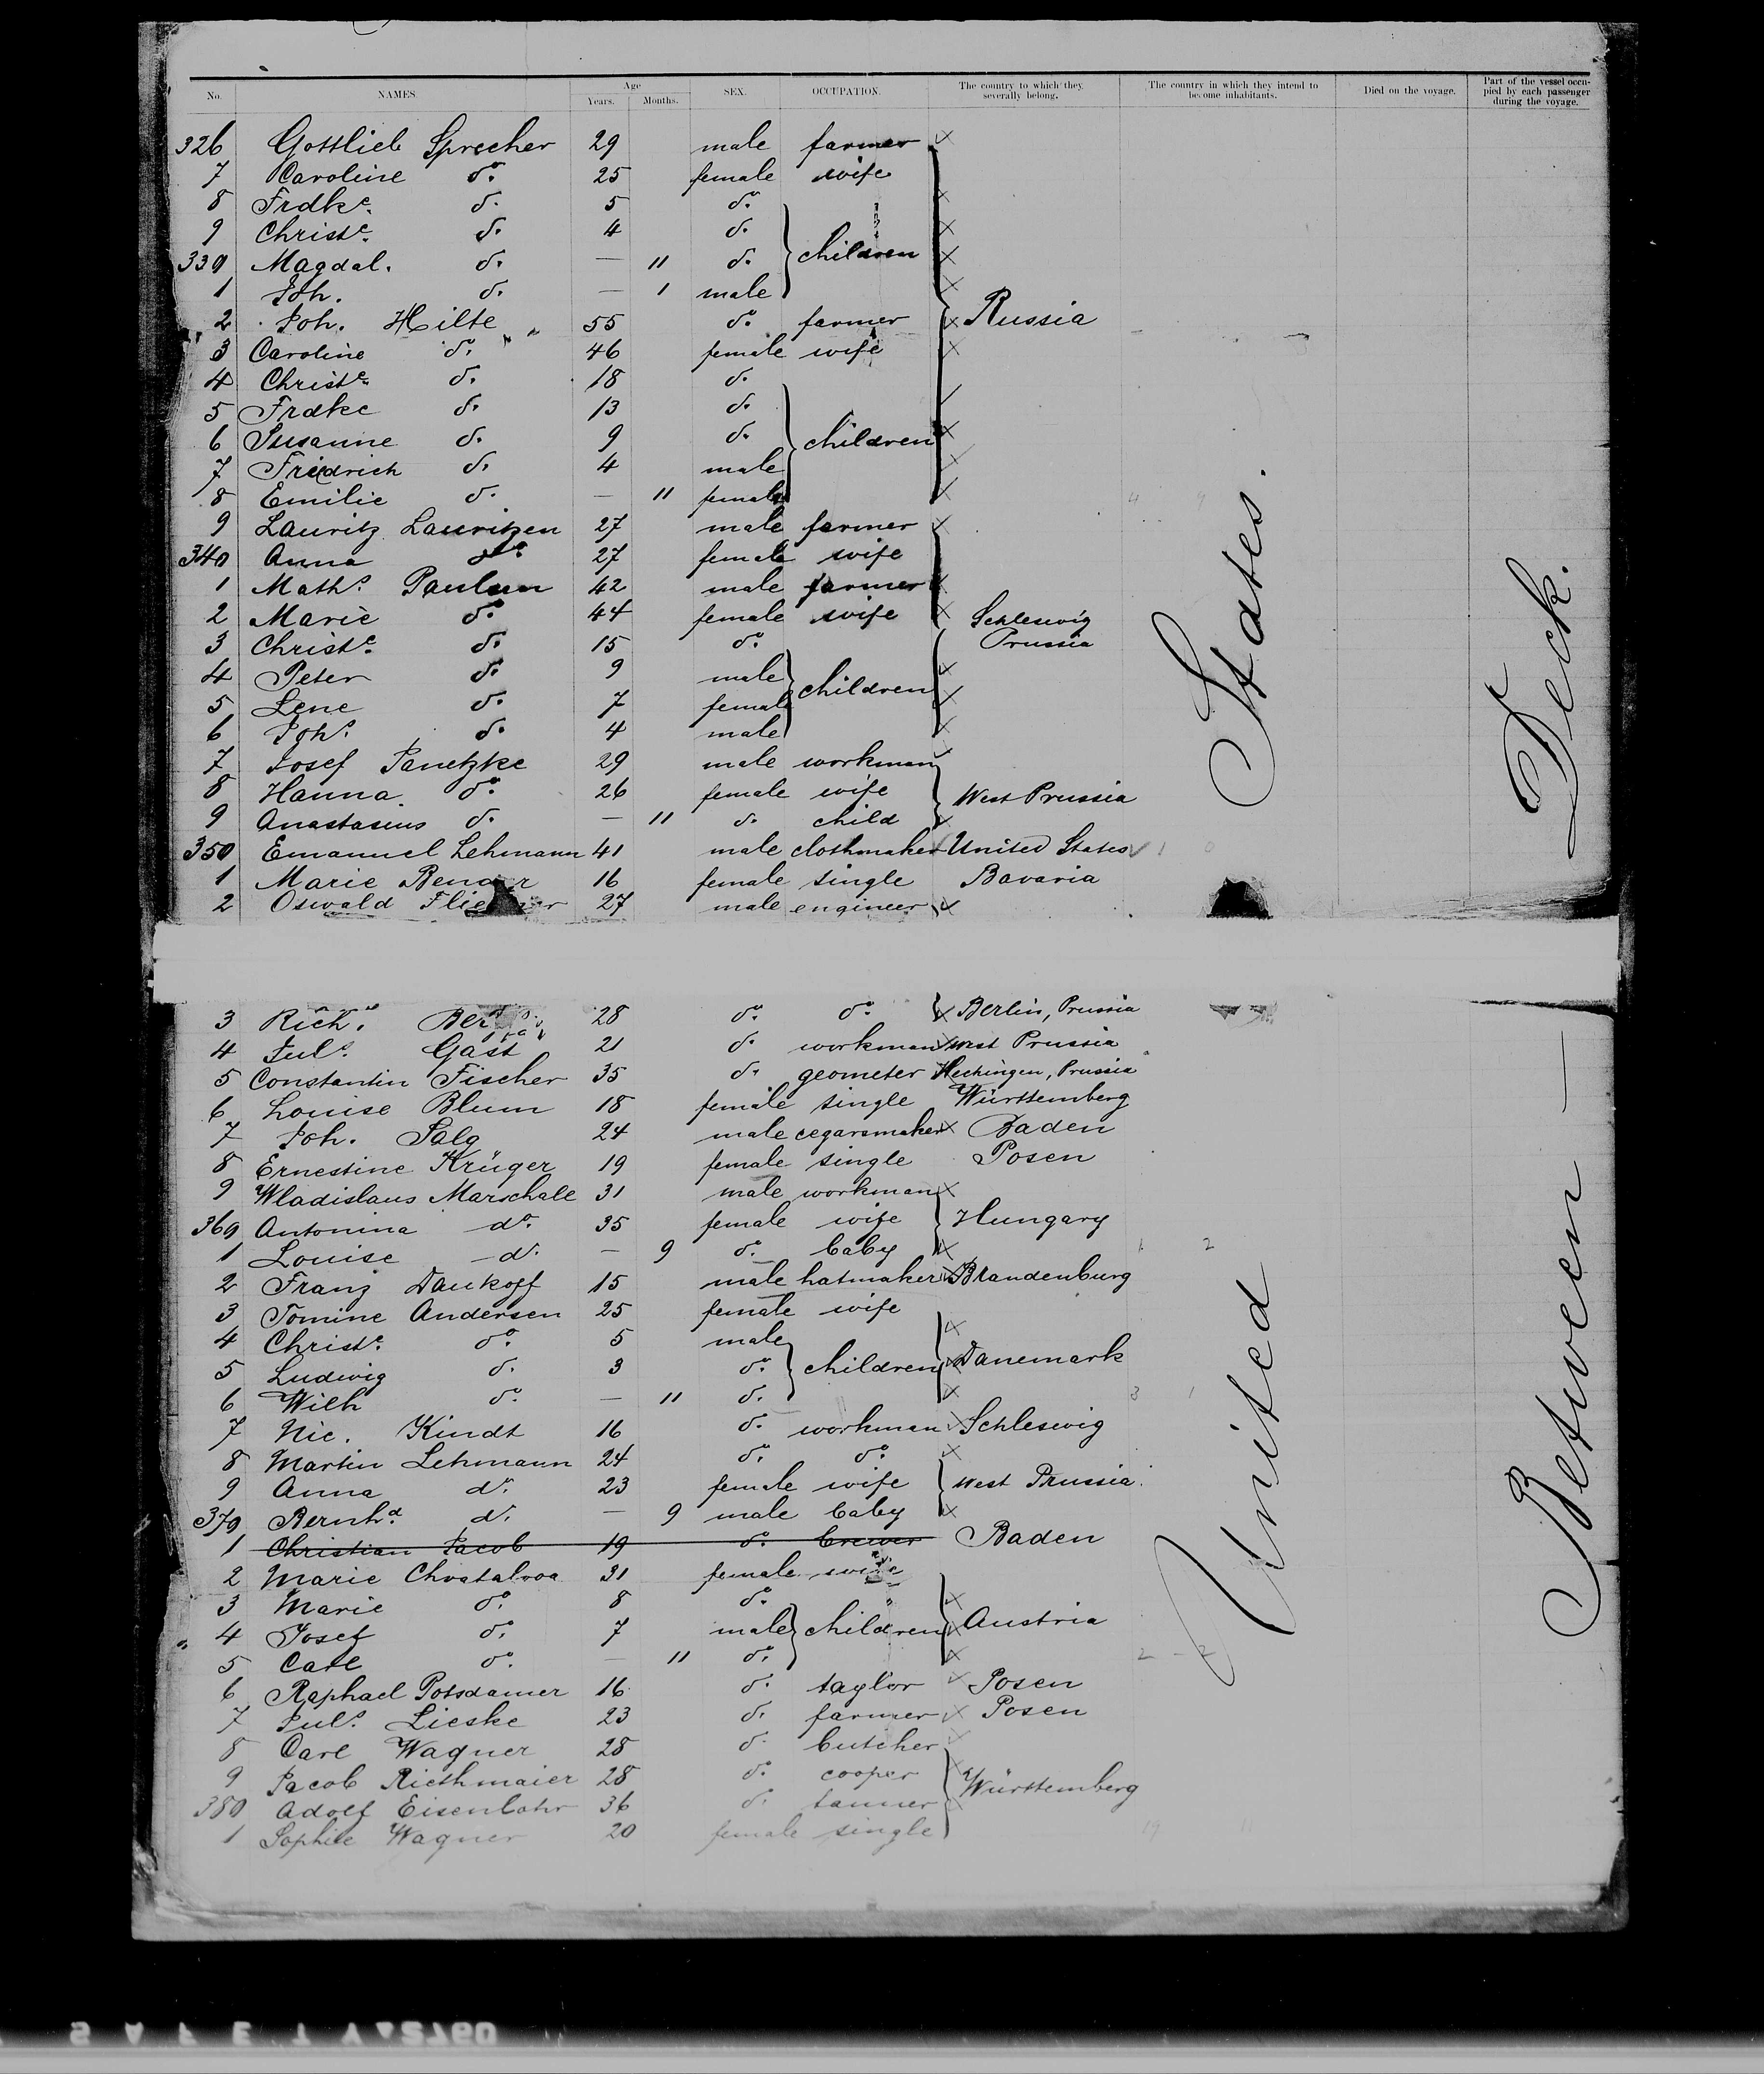 No. NAMES. Age Years. Months. SEX. OCCUPATION. The country to which they severally belong. The country in which they intend to become inhabitants. Died on the voyage. Part of the vessel occupied by each passenger during the voyage.
326 Gottlieb Sprecher 29 male farmer
7 Caroline do. 25 female wife
8 Frdke. d. 5 do.
9 Christe. d. 4 d.
330 Magdal. d. — 11 d. children
1 Joh. d. — 1 male
2 Joh. Hilte 55 do. farmer Russia
3 Caroline do. 46 female wife
4 Christe. d. 18 d.
5 Frdke d. 13 d.
6 Susanne d. 9 d. children
7 Friedrich d. 4 male
8 Emilie d. — 11 female
9 Lauritz Lauritzen 27 male farmer
340 Anna do. 27 female wife
1 Maths. Paulsen 42 male farmer
2 Marie do. 44 female wife Schleswig
3 Christe. d. 15 do. Prussia
4 Peter d. 9 male
5 Lene d. 7 female children
6 Johs. d. 4 male
7 Josef Panetzke 29 male workman
8 Hanna do. 26 female wife West Prussia
9 Anastasius d. — 11 d. child
350 Emanuel Lehmann 41 male clothmaker United States
1 Marie 16 female single Bavaria
2 Oswald 27 male engineer
3 Richd. 28 do. do. Berlin, Prussia
4 Juls. Gast 21 d. workman West Prussia
5 Constantin Fischer 35 d. geometer Hechingen, Prussia
6 Louise Blum 18 female single Württemberg
7 Joh. Salg 24 male cegarsmaker Baden
8 Ernestine Krüger 19 female single Posen
9 Wladislaus Marschall 31 male workman
360 Antonina do. 35 female wife Hungary
1 Louise d. — 9 do. baby
2 Franz Dankoff 15 male hatmaker Brandenburg
3 Tomine Andersen 25 female wife
4 Christe. do. 5 male
5 Ludwig d. 3 do. children Danemark
6 Wilh do. — 11 d.
7 Nic. Kindt 16 d. workman Schleswig
8 Martin Lehmann 24 d. do.
9 Anna d. 23 female wife West Prussia
370 Bernhd. d. — 9 male baby
1 Christian Jacob 19 d. brewer Baden
2 Marie Chvatalova 31 female wife
3 Marie do. 8 do.
4 Josef do. 7 male children Austria
5 Carl do. — 11 do.
6 Raphael Potsdamer 16 d. taylor Posen
7 Juls. Lieske 23 d. farmer Posen
8 Carl Wagner 28 d. butcher
9 Jacob Riethmaier 28 d. cooper Württemberg
380 Adolf Eisenlohr 36 d. tanner
1 Sophie Wagner 20 female single
United States.
Between Deck.